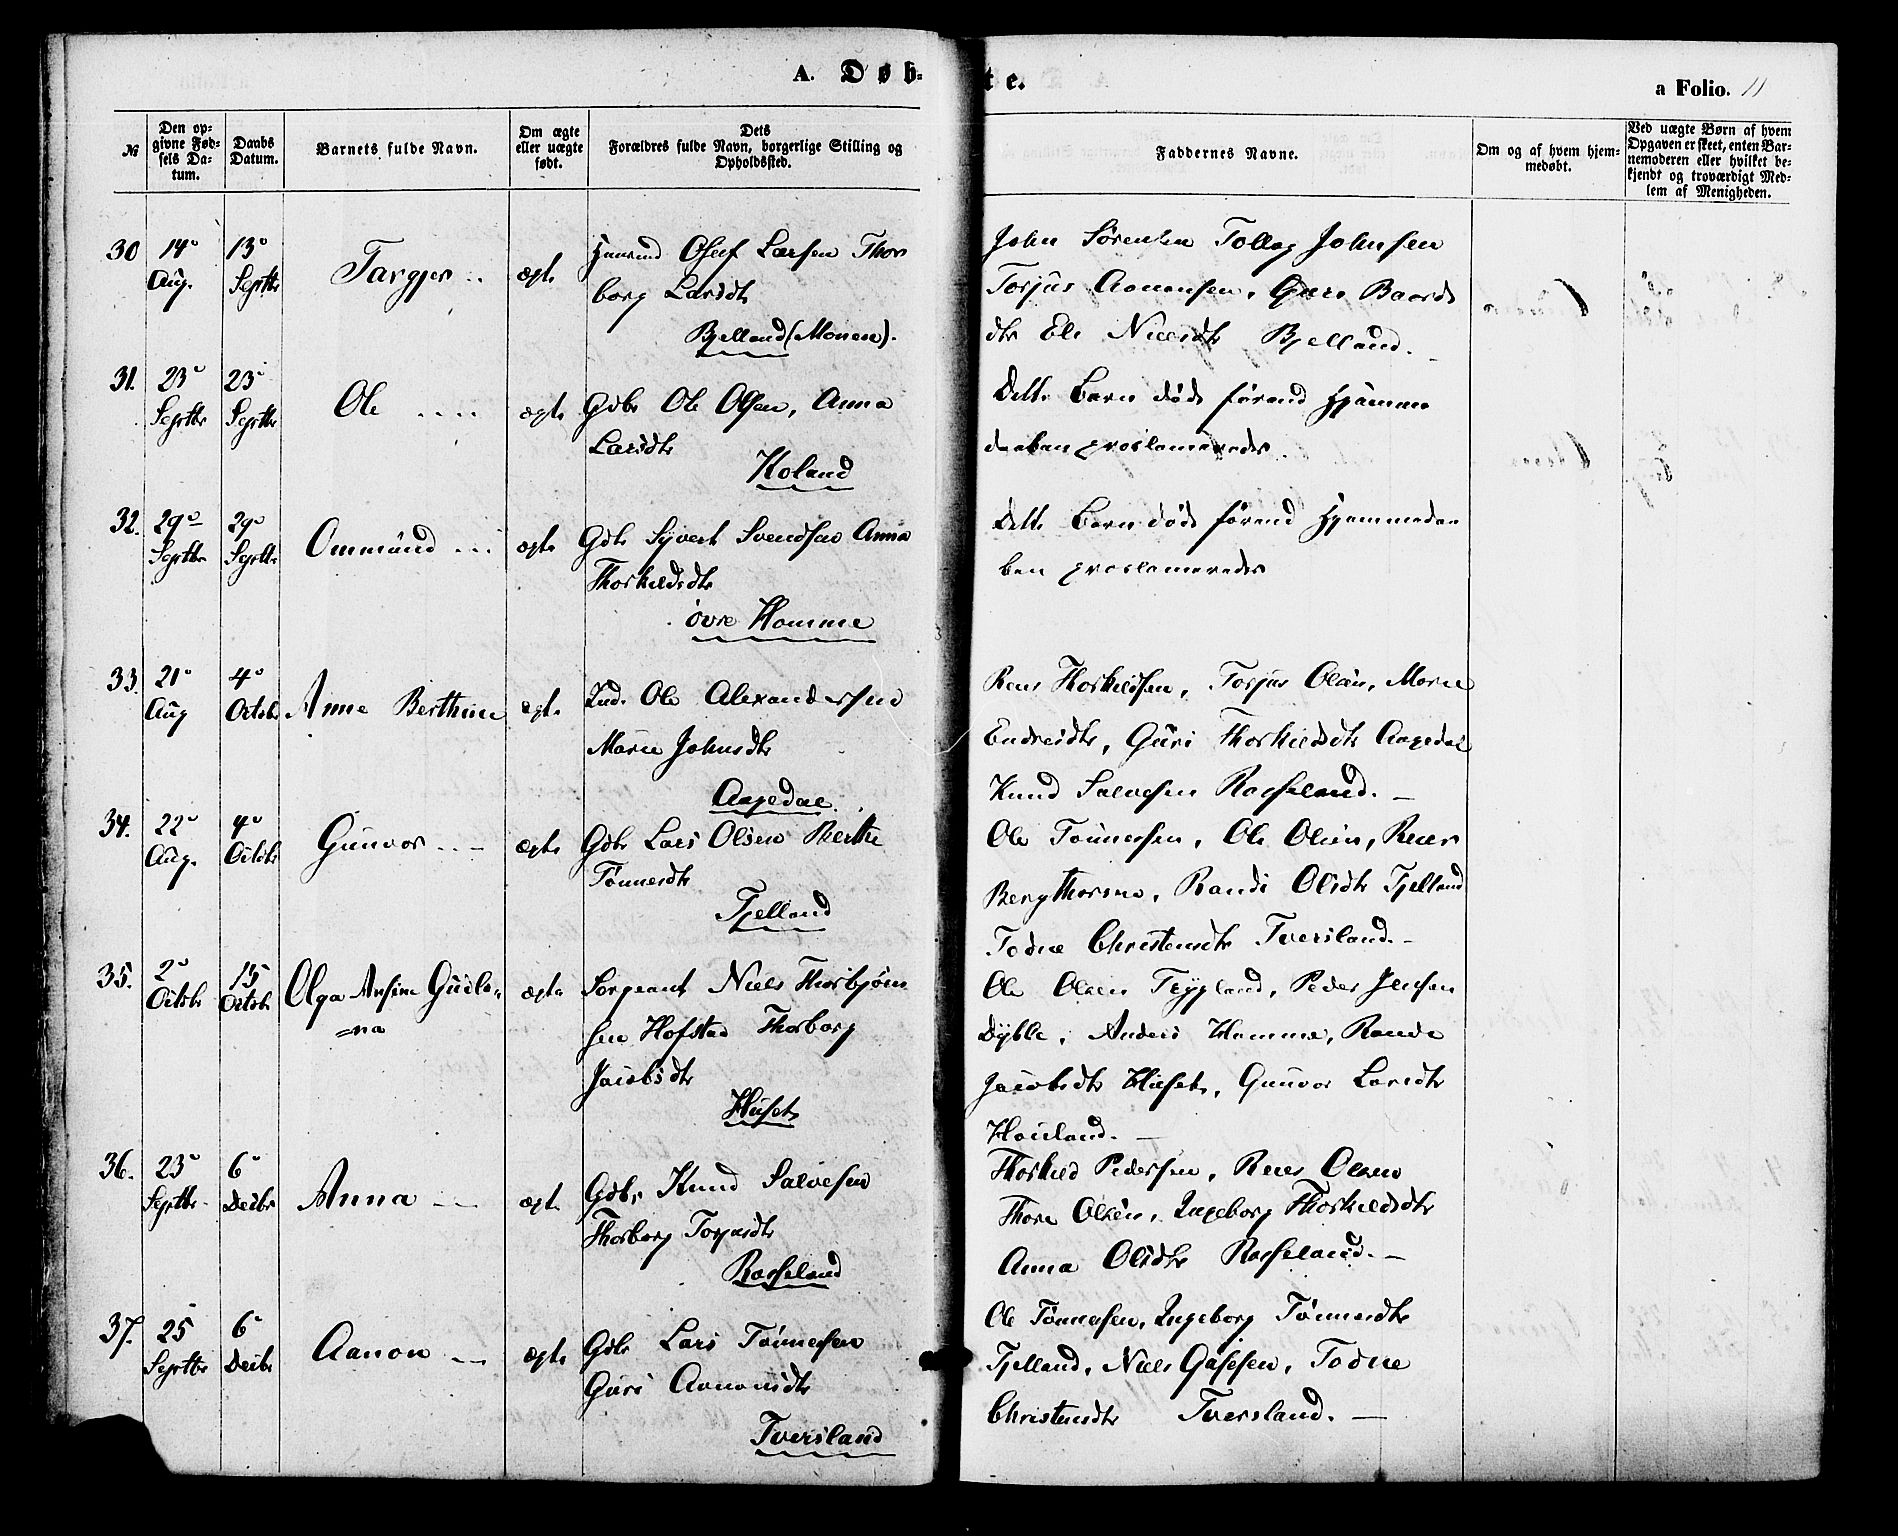 A. Døb-
te.
a Folio. 11
№
Den op-
givne Fød-
sels Da-
tum.
Daabs
Datum.
Barnets fulde Navn.
Om ægte
eller uægte
født.
Dets
Forældres fulde Navn, borgerlige Stilling og
Opholdssted.
Faddernes Navne.
Om og af hvem hjem-
medøbt.
Ved uægte Børn af hvem
Opgaven er skeet, enten Bar-
nemoderen eller hvilket be-
kjendt og troværdigt Med-
lem af Menigheden.
30 14 Aug. 13 Septbr Targjer ægte
Oluf Larsen Thor
borg Larsdtr
Bjelland (Monen).
John Sørensen Tollag Johnsen
Torjus Aanensen, Guro Baards
dtr Eli Nielsdtr Bjelland.
31. 23 Septbr 23 Septbr Ole ægte
Gdbr Ole Olsen, Anna
Larsdtr
Koland
Dette Barn døde førend Hjemme
daaben proclameredes.
32. 29 Septbr 29 Septbr Ommund ægte
Gdbr Syvert Svendsen Anna
Thorkildsdtr
øvre Homme
Dette Barn døde førend Hjemmedaa
ben proclameredes
33. 21 Aug 4 Octobr Anne Berthine ægte
Ind. Ole Alexandersen
Marie Johnsdtr
Aagedal.
Reier Thorkildsen, Torjus Olsen, Maren
Endresdtr, Guri Thorkildsdtr Aagedal
Knud Salvesen Rosseland.
34. 22 Aug. 4 Octobr Gunvor ægte
Gdbr Lars Olsen Berthe
Tønnesdtr
Tjelland
Ole Tønnesen, Ole Olsen, Reier
Bergthorsen, Randi Olsdtr Tjelland
Todne Christensdtr Tversland.
35. 2 Octobr 15 Octobr Olga Gurle-
na ægte
Sergeant Niels Thorbjørn
sen Hofstad Thorborg
Jacobsdtr
Huset
Ole Olsen Trygland, Peder Jensen
Dyblie, Anders Homme, Randi
Jacobsdtr Huset, Gunvor Larsdtr
Houland.
36. 23 Septbr 6 Decbr Anna ægte
Gdbr Knud Salvesen
Thorborg Torjusdtr
Rosseland
Thorkild Pedersen, Reier Olsen
Thore Olsen, Ingeborg Thorkildsdtr
Anna Olsdtr Rosseland.
37. 25 Septbr 6 Decbr Aanon ægte
Gdbr Lars Tønnesen
Guri Aanonsdtr
Tversland
Ole Tønnesen, Ingeborg Tønnesdtr
Tjelland, Niels Gafsen, Todne
Christensdtr Tversland.